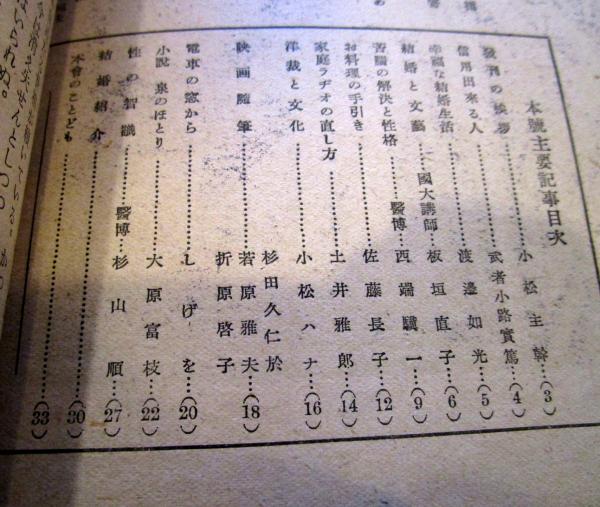 本號主要記事目次
發刊の挨拶………小松主幹…(3)
信用出來る人………武者小路實篤…(4)
幸福な結婚生活………渡邊如光…(5)
結婚と文藝………國大講師…板垣直子…(6)
苦腦の解決と性格………醫博…西端驥一…(9)
お料理の手引き………佐藤長子…(12)
家庭ラヂオの直し方………土井雅郎…(14)
洋裁と文化………小松ハナ…(16)
映画隨筆………杉田久仁於
若原雅夫…(18)
折原啓子
電車の窓から………しげを…(20)
小說 泉のほとり………大原富枝…(22)
性の智識………醫博…杉山順…(27)
結婚紹介………(30)
本會のことども………(33)